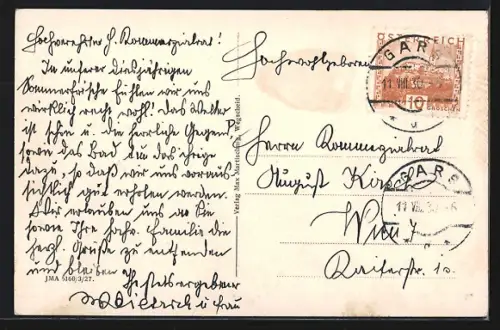 Hochverehrter H. Kommerzialrat!
In unserer diesjährigen
Sommerfrische fühlen wir uns
wirklich recht wohl! Das Wetter
ist schön u. die herrliche Gegend,
sowie das Bad tun das ihrige
dazu, so daß wir uns voraus-
sichtlich gut erholen werden.
Wir erlauben uns an Sie
sowie Ihre Familie die
herzl. Grüße zu entsenden
und bleiben
Ihr stets ergebener
u. Frau
JMA 5160/3/27.
Verlag Max
ÖSTERREICH
10
GROSCHEN
GARS
11 VIII 30
GARS
11 VIII 30
Hochwohlgeboren
Herrn Kommerzialrat
August
Wien 7
Kaiserstr.